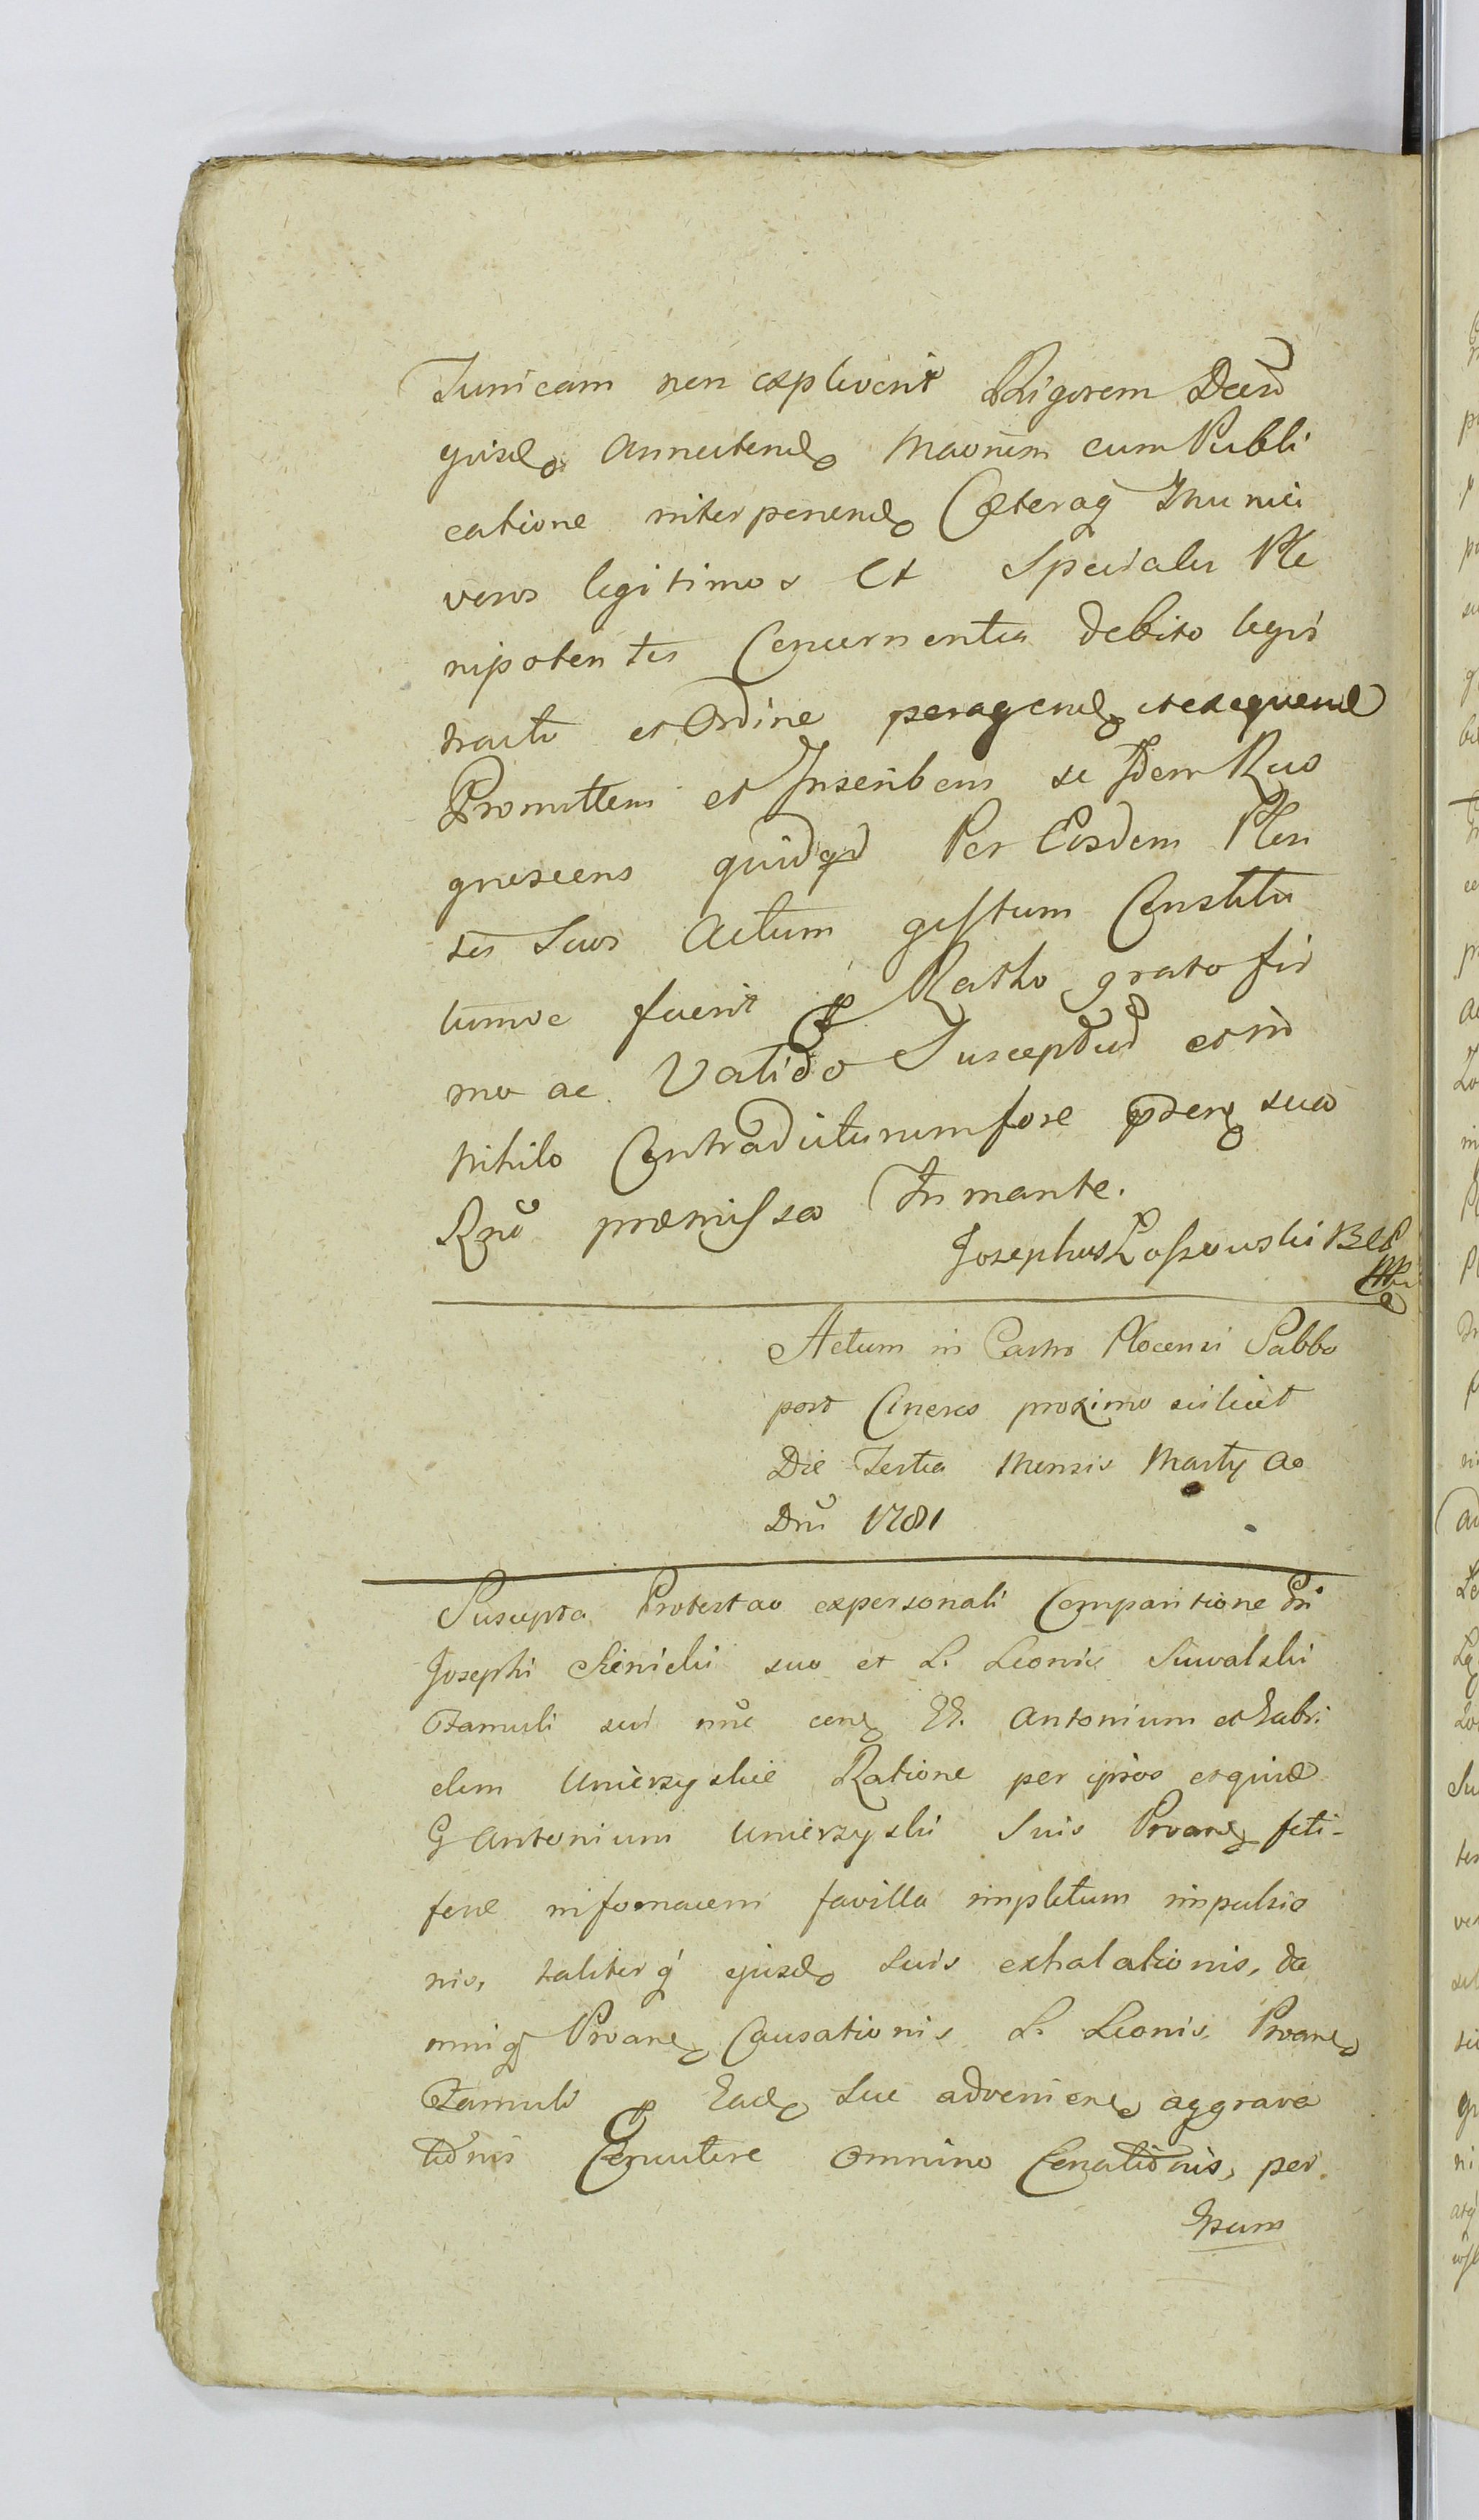 Tunicam non expliverit Rigorem Decrti
quisd. annectend. Maonem cum Publi
catione interponend. Caeteraq Muneri
veros legitimos Et Speciales Ple
nipotentes Concernentia debito legis
tractu et Ordine peragend. et exequend
Promittens et Inscribens se Idem Reco
gnoscens quidqd Per Eosdem Plen
tes Suos Actum gestum Constitu
tumve fuerit p Ratho grato fir
mo ac Valido Suscepturū et in
nihilo Contradicturum fore pden. sua
Rnē praemissa In mante.
Josephus Łossowski BCP
mp
Actum in Castro Plocensi Sabbo
post Cineres proximo scilicet
Die Tertia Mensis Martij Ao
Dnī 1781
Suscepta Protestao ex personali Comparitione Gsi
Josephi suo et L. Leonis Suwalski
Famuli sui nnē con. GG. Antonium et Gabri
elem Umierzyskie Ratione per ipsos et quid
G Antonium Umierzyski Suis Proan. feti-
fere in fornacem favilla impletum impulsio
nis, taliterq ejusd. Suis exhalationis, da
mniq Proan. Causationis L. Leonis Proan.
Famuli p Ead. Sue advenien. aggrava
tionis Concutere omnino Conationis, per
Ipsum